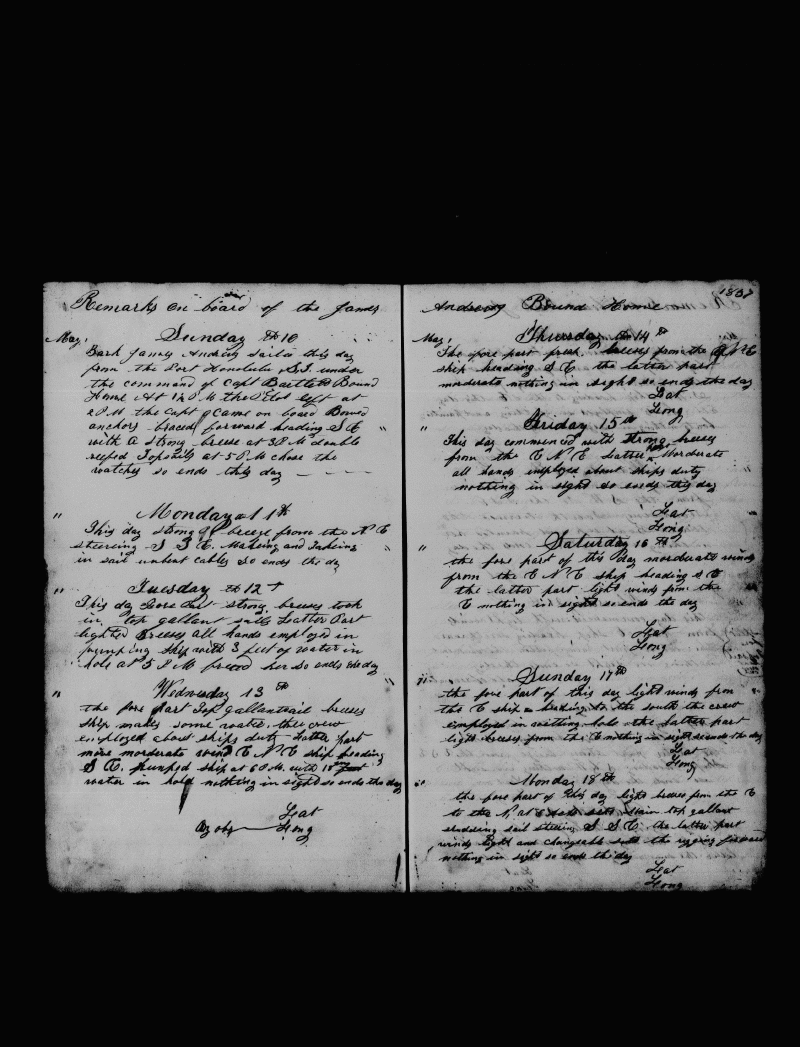 Remarks on board of the James
May, Sunday th 10
Bark James Andrews sailed this day
from the Port Honolulu S.I. under
the command of Capt Bartlett Bound
Home At 12 M the Pilot left at
2 P M the Capt came on board Bowed
anchors braced forward heading S E "
with A strong breese at 3 P M double
reefed Topsails at 5 P M chose the
watches so ends this day — - - -
" Monday 11th
This day strong breese from the N E
steereing S S E. Makeing and Takeing "
in sail unbent cables so ends the day
" Tuesday th 12
This day strong breeses took
in top gallant sails Latter Part
lighter Breeses all hands employed in
pumping ship with 3 feet of water in
hole at 5 P M freed her so ends the day
" Wednesday 13 th "
the fore part Top gallantsail breeses
ship makes some water, the crew
employed about ships duty Latter part
more morderate wind E N E ship heading
S E. pumped ship at 6 P.M. with
water in hold nothing in sight so ends the day
Lat
By obs — Long
1857
Andrews Bound Home
May, Thursday the 14th
The fore part fresh breeses from the E N E
ship heading S E the latter part
morderate nothing in sight so ends the day
Lat
Long
" Friday 15th
This day commenced with strong breeses
from the E N E latter part Morderate
all hands employed about ships duty
nothing in sight so ends this day
Lat
Long
" Saturday 16 th
the fore part of this day morderate winds
from the E N E ship heading S E
the latter part light winds from the
E nothing in sight so ends the day
Lat
Long
" Sunday 17th
the fore part of this day light winds from
the E ship heading to the south the crew
employed in wetting hole the latter part
light breeses from the E nothing in sight so ends the day
Lat
Long
" Monday 18th
the fore part of this day light breeses from the E
to the N. at 6 sett Main top gallant
studding sail steering S S E the latter part
winds light and changeable sett the rigging forward
nothing in sight so ends the day
Lat
Long